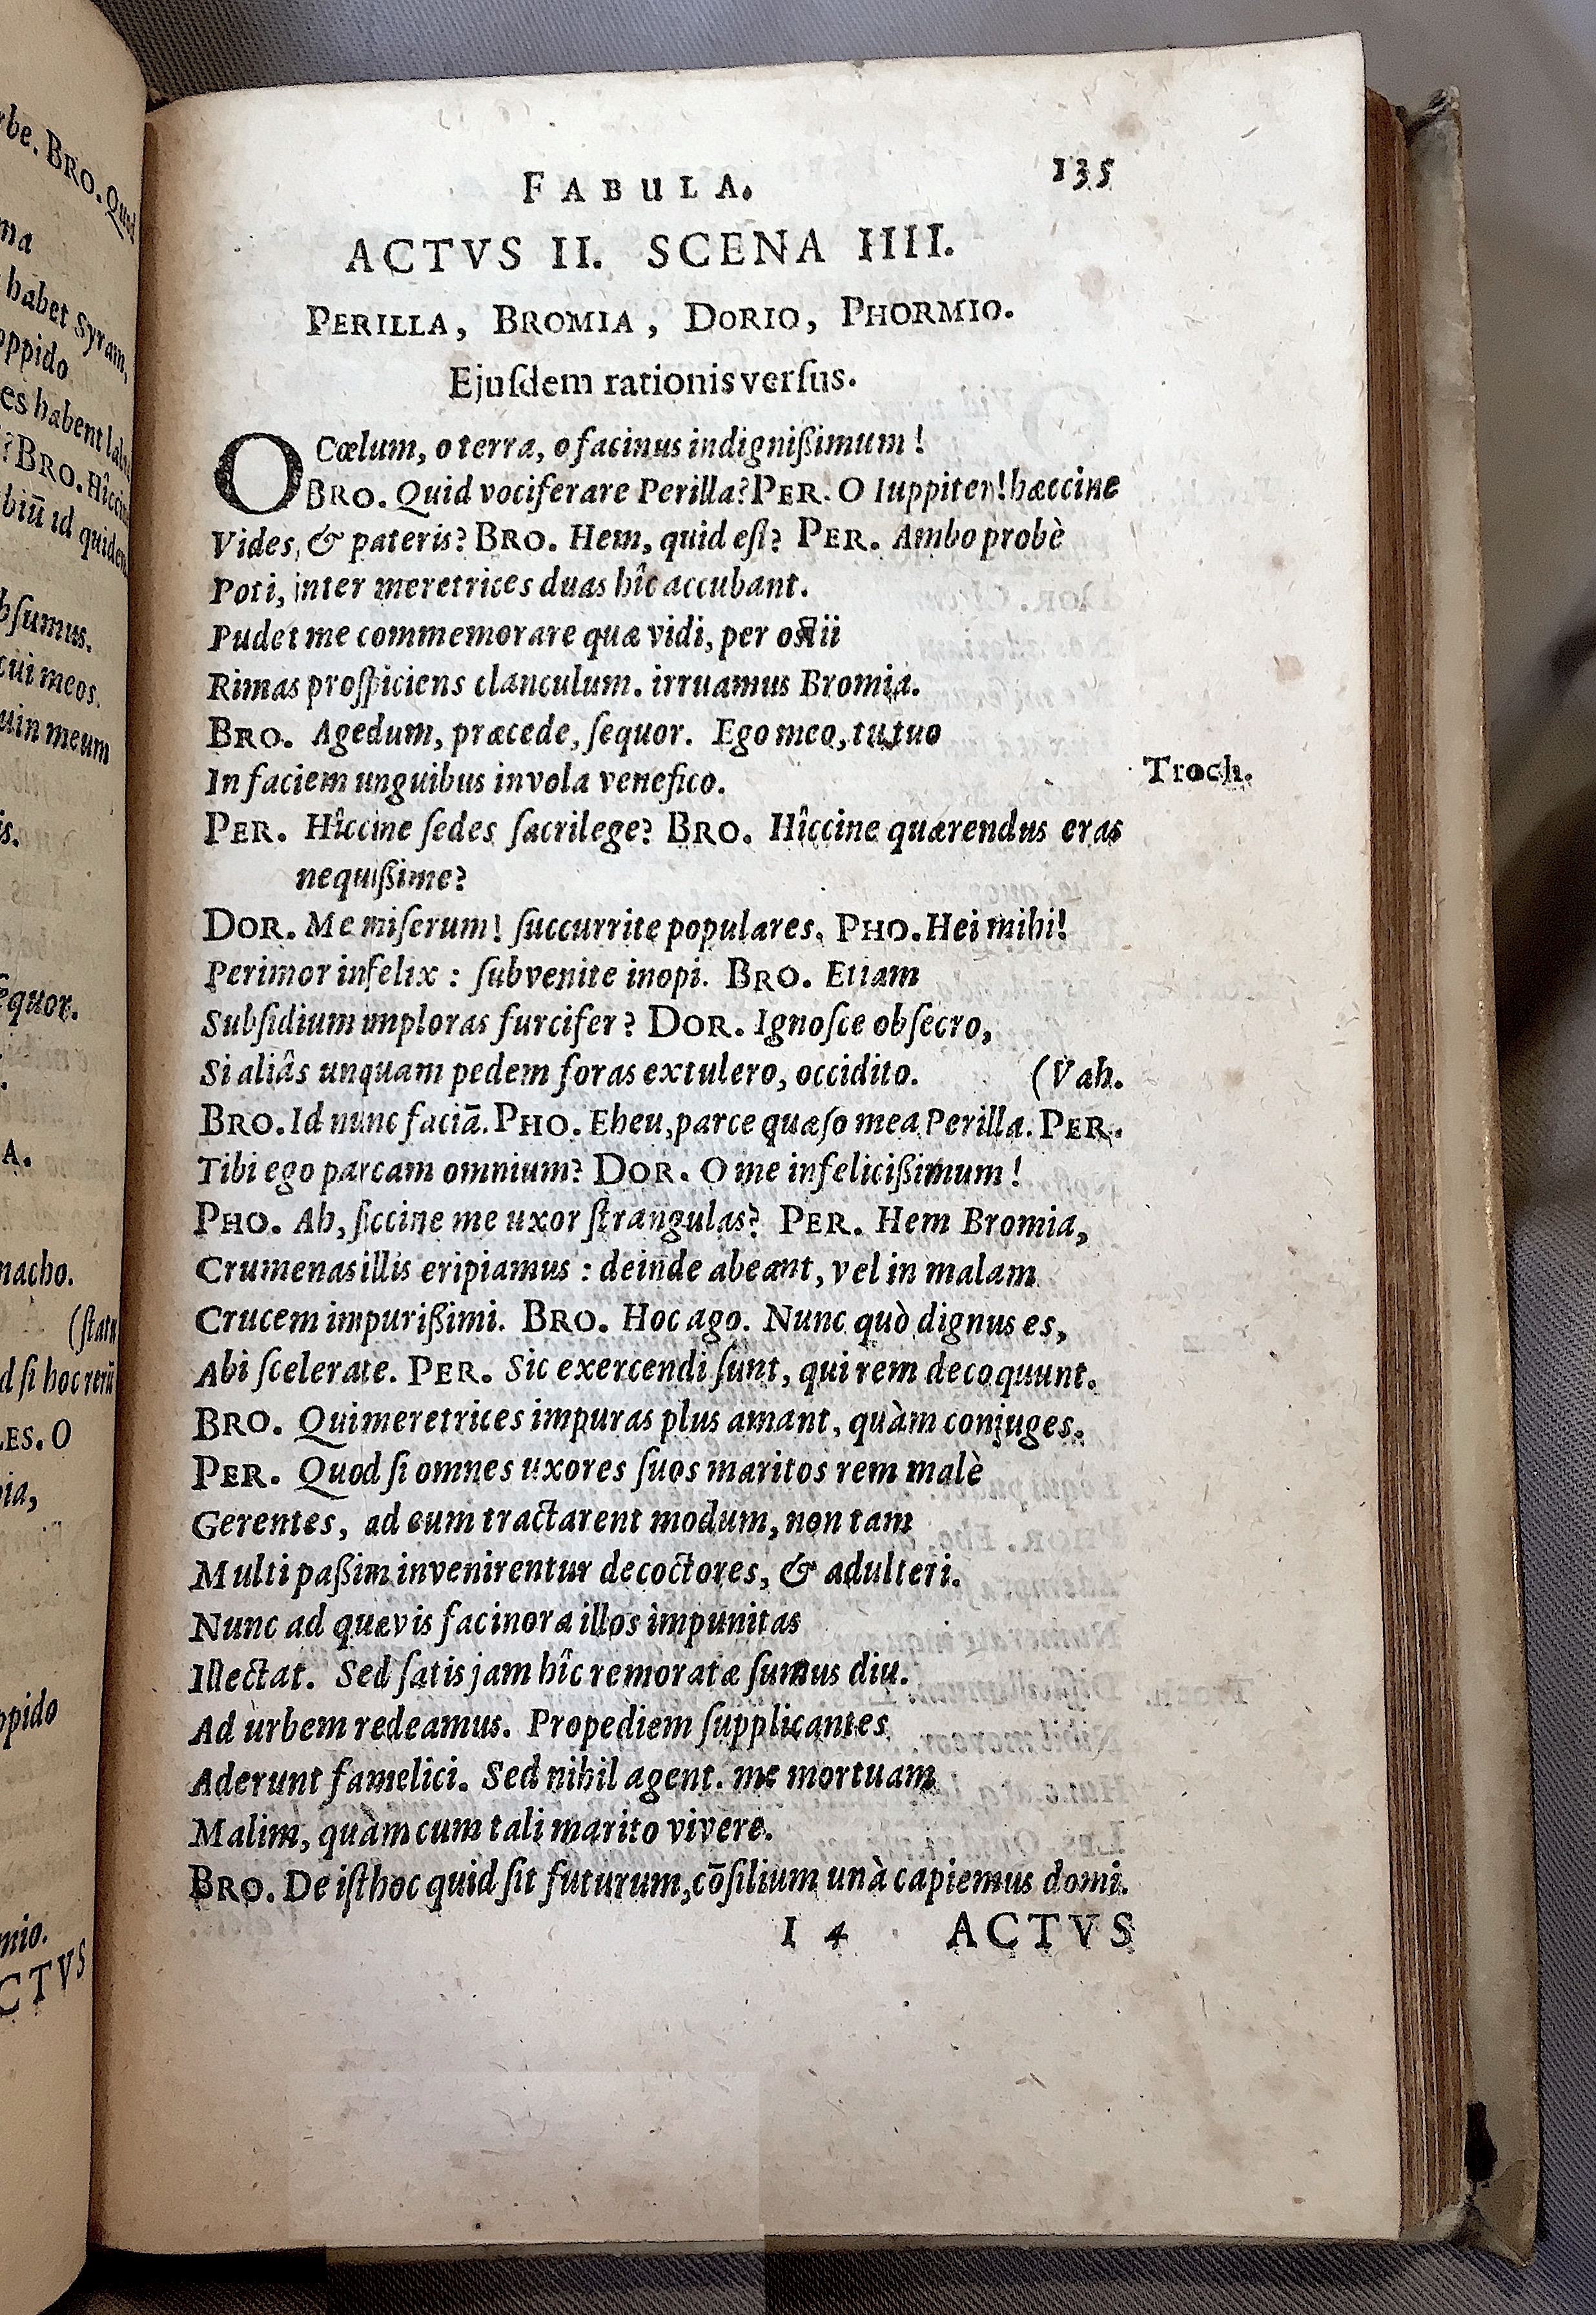 rbe. BRO. Quod
ma
habet Syram,
oppido
es habent
? BRO. Hîccin
biū id quidem
bſumus.
cui meos.
uin meum
is.
æquor.
A.
nacho.
(ſtatu
d ſi hoc rerū
LES. O
oia,
ppido
mio.
CTVS
FABULA. 135
ACTVS II. SCENA IIII.
PERILLA, BROMIA, DORIO, PHORMIO.
Ejuſdem rationis verſus.
O Cœlum, o terra, o facinus indignißimum!
BRO. Quid vociferare Perilla? PER. O Iuppiter! hæccine
Vides, & pateris? BRO. Hem, quid eſt? PER. Ambo probè
Poti, inter meretrices duas hîc accubant.
Pudet me commemorare quæ vidi, per oſtii
Rimas proſpiciens clanculum. irruamus Bromia.
BRO. Agedum, præcede, ſequor. Ego meo, tu tuo
In faciem unguibus invola venefico. Troch.
PER. Hîccine ſedes ſacrilege? BRO. Hîccine quærendus eras
nequißime?
DOR. Me miſerum! ſuccurrite populares. PHO. Hei mihi!
Perimor infelix : ſubvenite inopi. BRO. Etiam
Subſidium imploras furcifer? DOR. Ignoſce obſecro,
Si aliâs unquam pedem foras extulero, occidito. (Vah.
BRO. Id nunc faciā. PHO. Eheu, parce quæſo mea Perilla. PER.
Tibi ego parcam omnium? DOR. O me infelicißimum!
PHO. Ah, ſiccine me uxor ſtrangulas? PER. Hem Bromia,
Crumenas illis eripiamus : deinde abeant, vel in malam
Crucem impurißimi. BRO. Hoc ago. Nunc quò dignus es,
Abi ſcelerate. PER. Sic exercendi ſunt, qui rem decoquunt.
BRO. Qui meretrices impuras plus amant, quàm conjuges.
PER. Quod ſi omnes uxores ſuos maritos rem malè
Gerentes, ad eum tractarent modum, non tam
Multi paßim invenirentur decoctores, & adulteri.
Nunc ad quævis facinora illos impunitas
Illectat. Sed ſatis jam hîc remoratæ ſumus diu.
Ad urbem redeamus. Propediem ſupplicantes
Aderunt famelici. Sed nihil agent. me mortuam
Malim, quàm cum tali marito vivere.
BRO. De iſthoc quid ſit futurum, cōſilium unà capiemus domi.
I 4 ACTVS